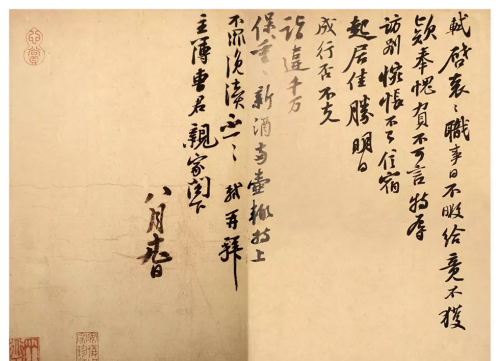 軾啓衮〻職事日不暇給竟不獲
款奉愧負不可言特辱
訪别惋悵不已信宿
起居佳勝明日
成行否不克
詣違千万
保重〻新酒兩壺輒持上
不罪浼瀆不一〻 軾再拜
主簿曹君親家閤下
八月十六日